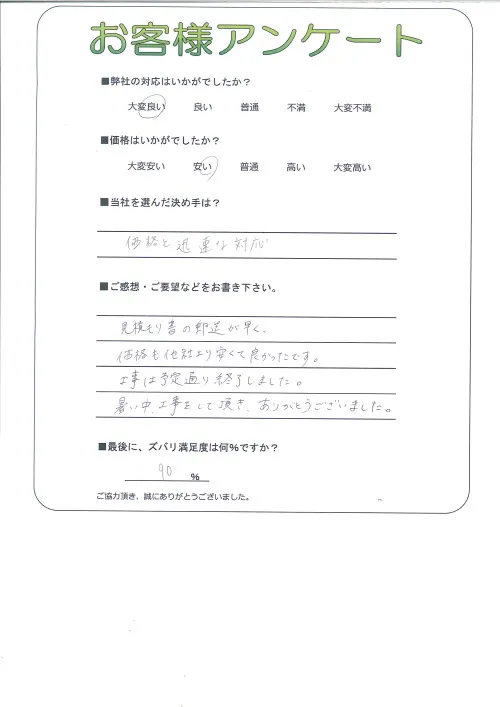 お客様アンケート
■弊社の対応はいかがでしたか？
大変良い 良い 普通 不満 大変不満
■価格はいかがでしたか？
大変安い 安い 普通 高い 大変高い
■当社を選んだ決め手は？
価格と迅速な対応
■ご感想・ご要望などをお書き下さい。
見積もり書の郵送が早く、
価格も他社より安くて良かったです。
工事は予定通り終了しました。
暑い中、工事をして頂き、ありがとうございました。
■最後に、ズバリ満足度は何％ですか？
90 ％
ご協力頂き、誠にありがとうございました。